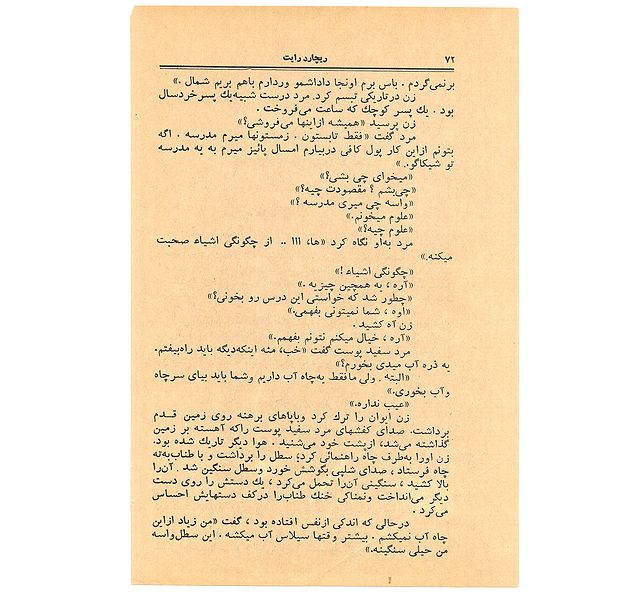 ۷۲
ریچارد رایت
برنمی‌گردم . باس برم اونجا داداشمو وردارم باهم بریم شمال .»
زن درتاریکی تبسم کرد. مرد درست شبیه‌یك پسرخردسال
بود . یك پسر کوچك که ساعت می‌فروخت .
زن پرسید «همیشه ازاینها می‌فروشی؟»
مرد گفت «فقط تابستون . زمستونها میرم مدرسه . اگه
بتونم ازاین کار پول کافی دربیارم امسال پائیز میرم به یه مدرسه
تو شیکاگو. »
«میخوای چی بشی؟»
«چی‌بشم ؟ مقصودت چیه؟»
«واسه چی میری مدرسه ؟»
«علوم میخونم.»
«علوم چیه؟»
مرد به‌او نگاه کرد «ها، ااا .. از چگونگی اشیاء صحبت
میکنه.»
«چگونگی اشیاء !»
«آره ، یه همچین چیزیه .»
«چطور شد که خواستی این درس رو بخونی؟»
«اوه ، شما نمیتونی بفهمی.»
زن آه کشید .
«آره ، خیال میکنم نتونم بفهمم.»
مرد سفید پوست گفت «خب، مثه اینکه‌دیگه باید راه‌بیفتم.
یه ذره آب میدی بخورم؟»
«البته . ولی مافقط یه‌چاه آب داریم وشما باید بیای سرچاه
وآب بخوری.»
«عیب نداره.»
زن ایوان را ترك کرد وباپاهای برهنه روی زمین قـدم
برداشت. صدای کفشهای مرد سفید پوست راکه آهسته بر زمین
گذاشته می‌شد، ازپشت خود می‌شنید . هوا دیگر تاریك شده بود.
زن اورا به‌طرف چاه راهنمائی کرد؛ سطل را برداشت و با طناب‌به‌ته
چاه فرستاد ، صدای شلپی بگوشش خورد وسطل سنگین شد . آن‌را
بالا کشید ، سنگینی آن‌را تحمل می‌کرد ، یك دستش را روی دست
دیگر می‌انداخت ونمناکی خنك طناب‌را درکف دستهایش احساس
می‌کرد .
درحالی که اندکی ازنفس افتاده بود ، گفت «من زیاد ازاین
چاه آب نمیکشم . بیشتر وقتها سیلاس آب میکشه . این سطل‌واسه
من خیلی سنگینه.»